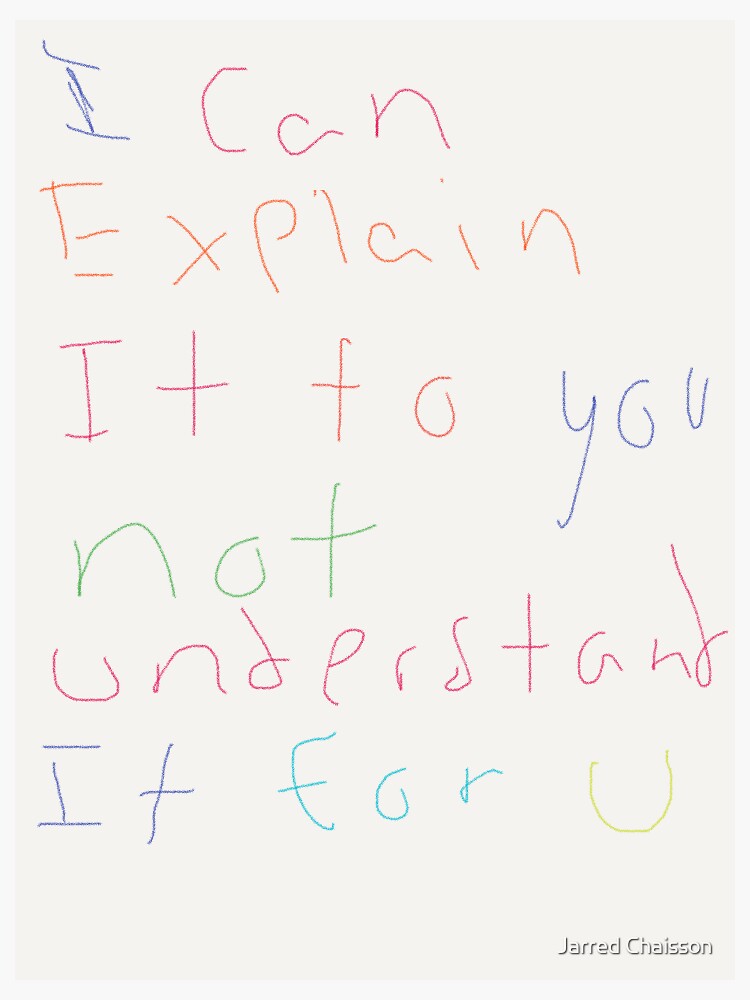 I Can
Explain
It to you
not
understand
It for U
Jarred Chaisson